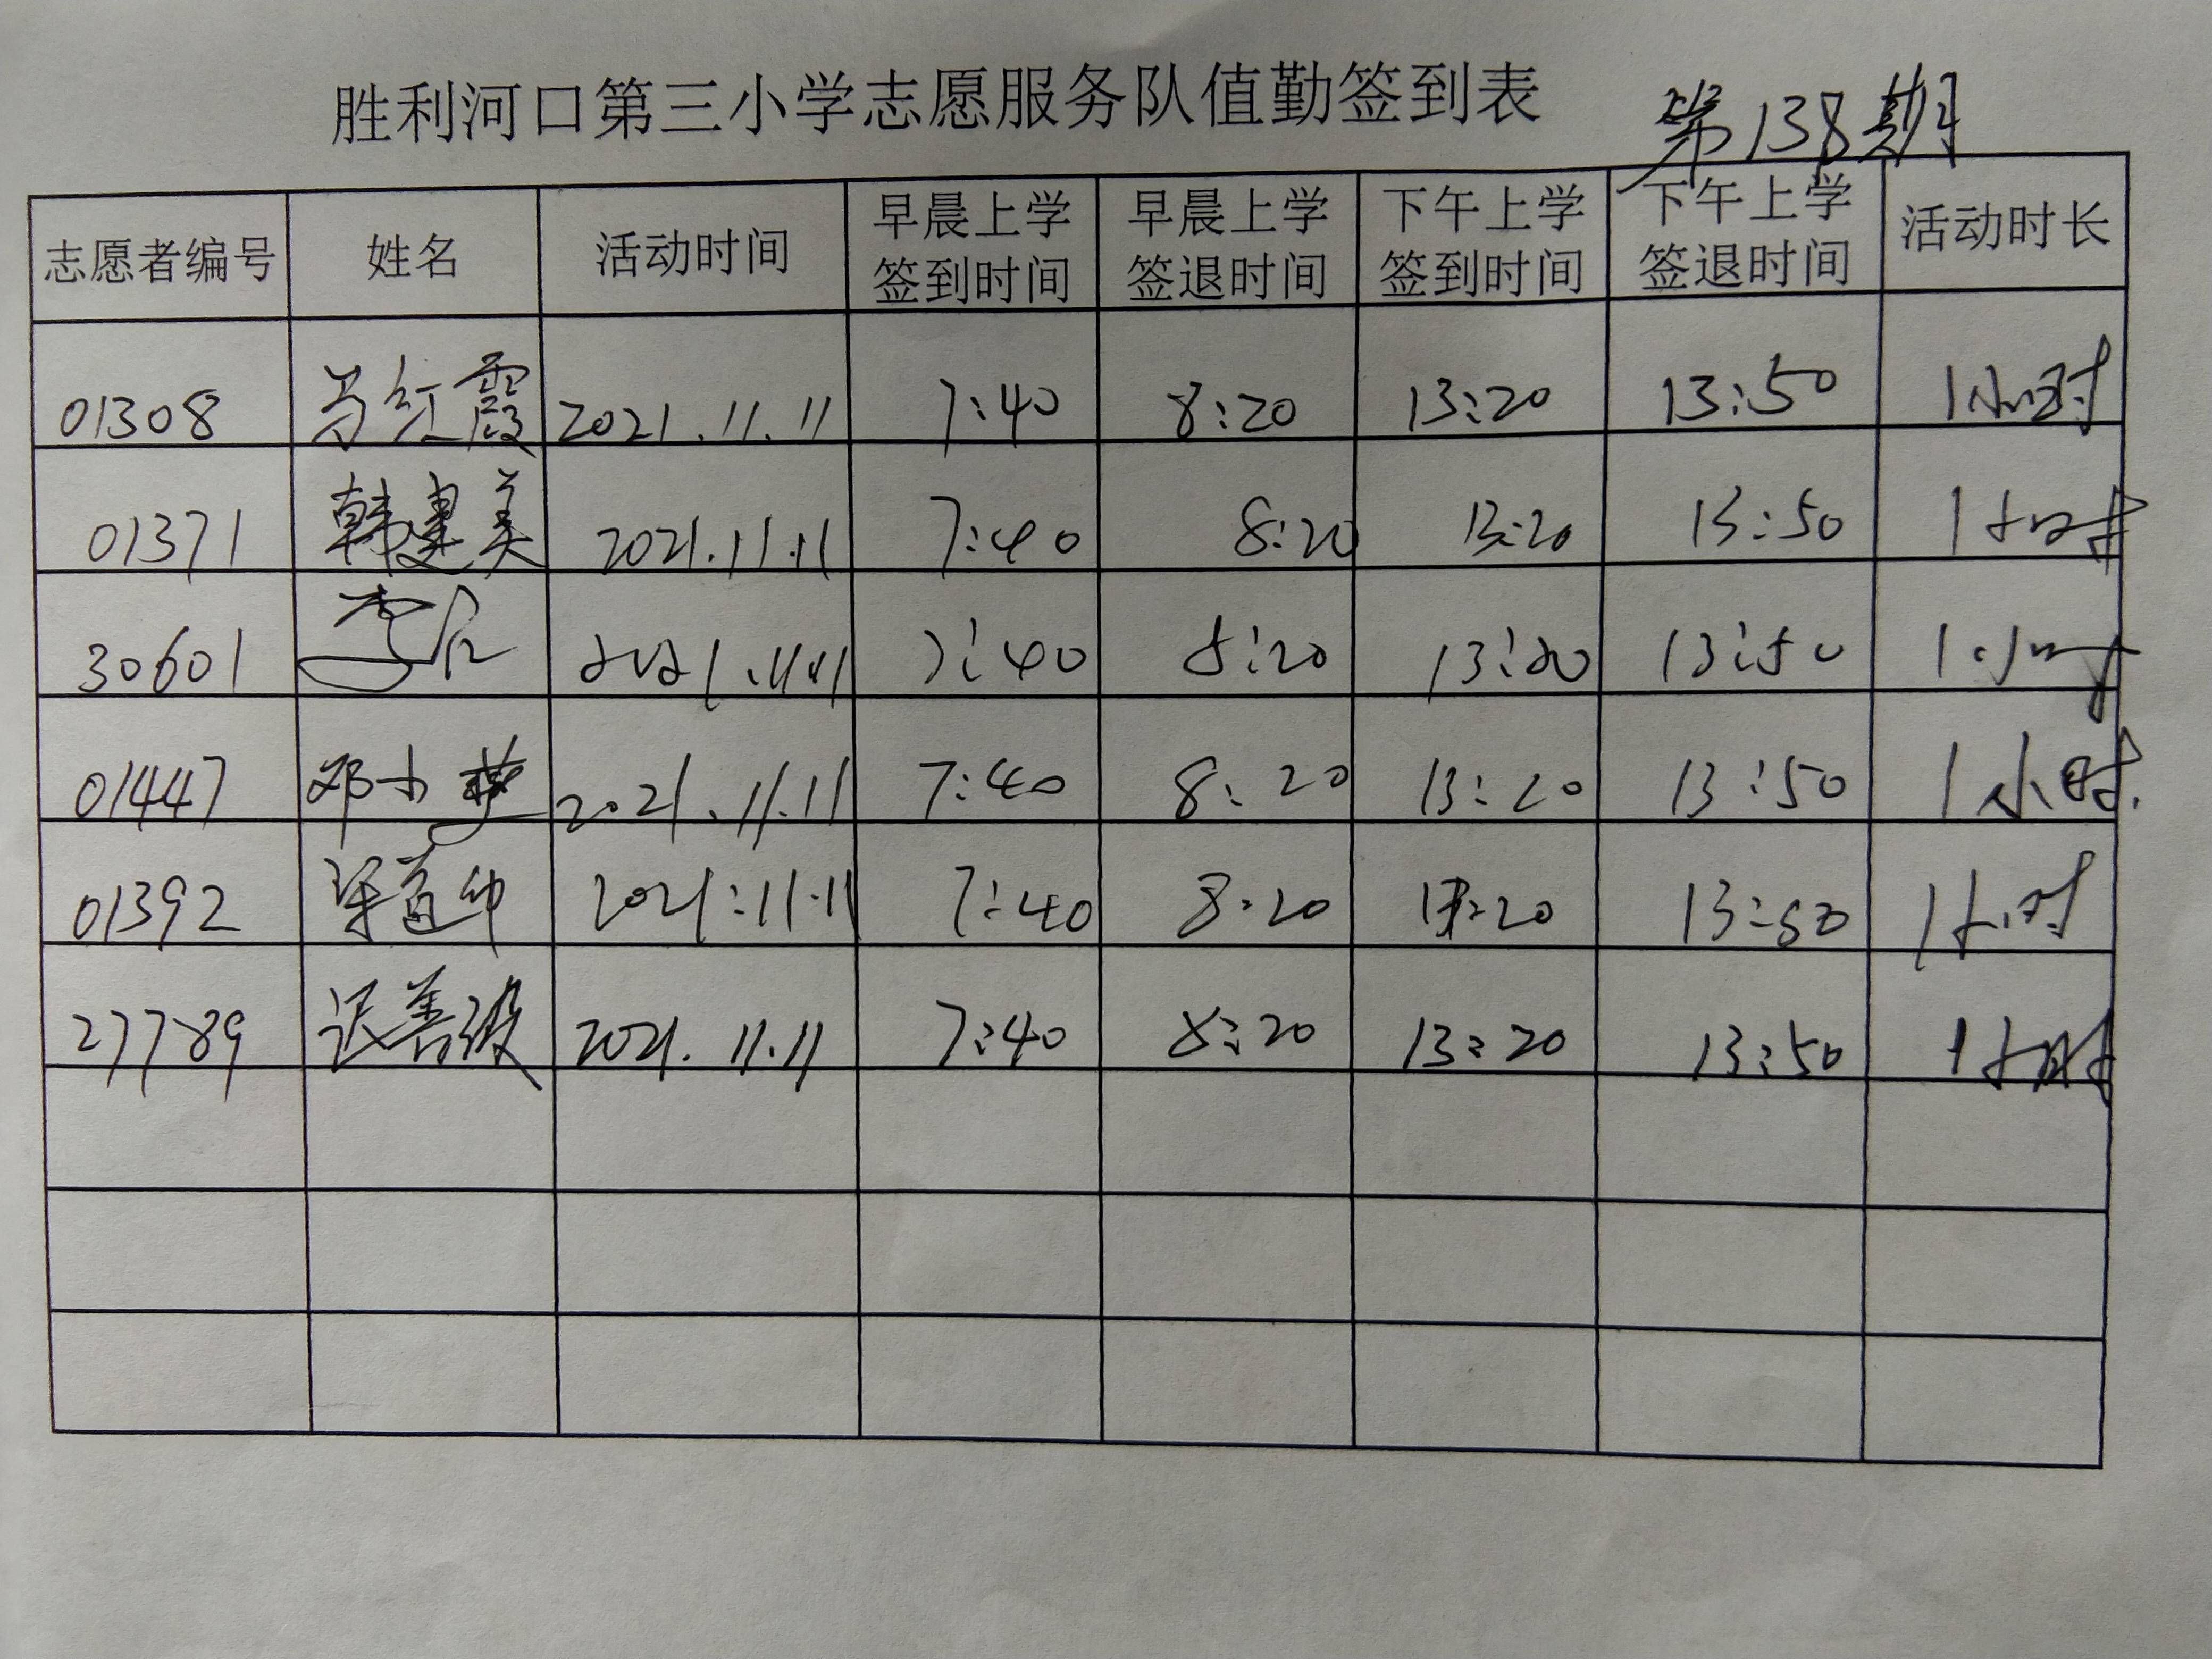 胜利河口第三小学志愿服务队值勤签到表 第138期
志愿者编号 姓名 活动时间 早晨上学签到时间 早晨上学签退时间 下午上学签到时间 下午上学签退时间 活动时长
01308 红霞 2021.11.11 7:40 8:20 13:20 13:50 1小时
01371 韩建美 2021.11.11 7:40 8:20 13:20 13:50 1小时
30601 李 2021.11.11 7:40 8:20 13:20 13:50 1小时
01447 邓小 2021.11.11 7:40 8:20 13:20 13:50 1小时.
01392 2021:11.11 7:40 8:20 13:20 13:50 1小时
27789 善 2021.11.11 7:40 8:20 13:20 13:50 1小时